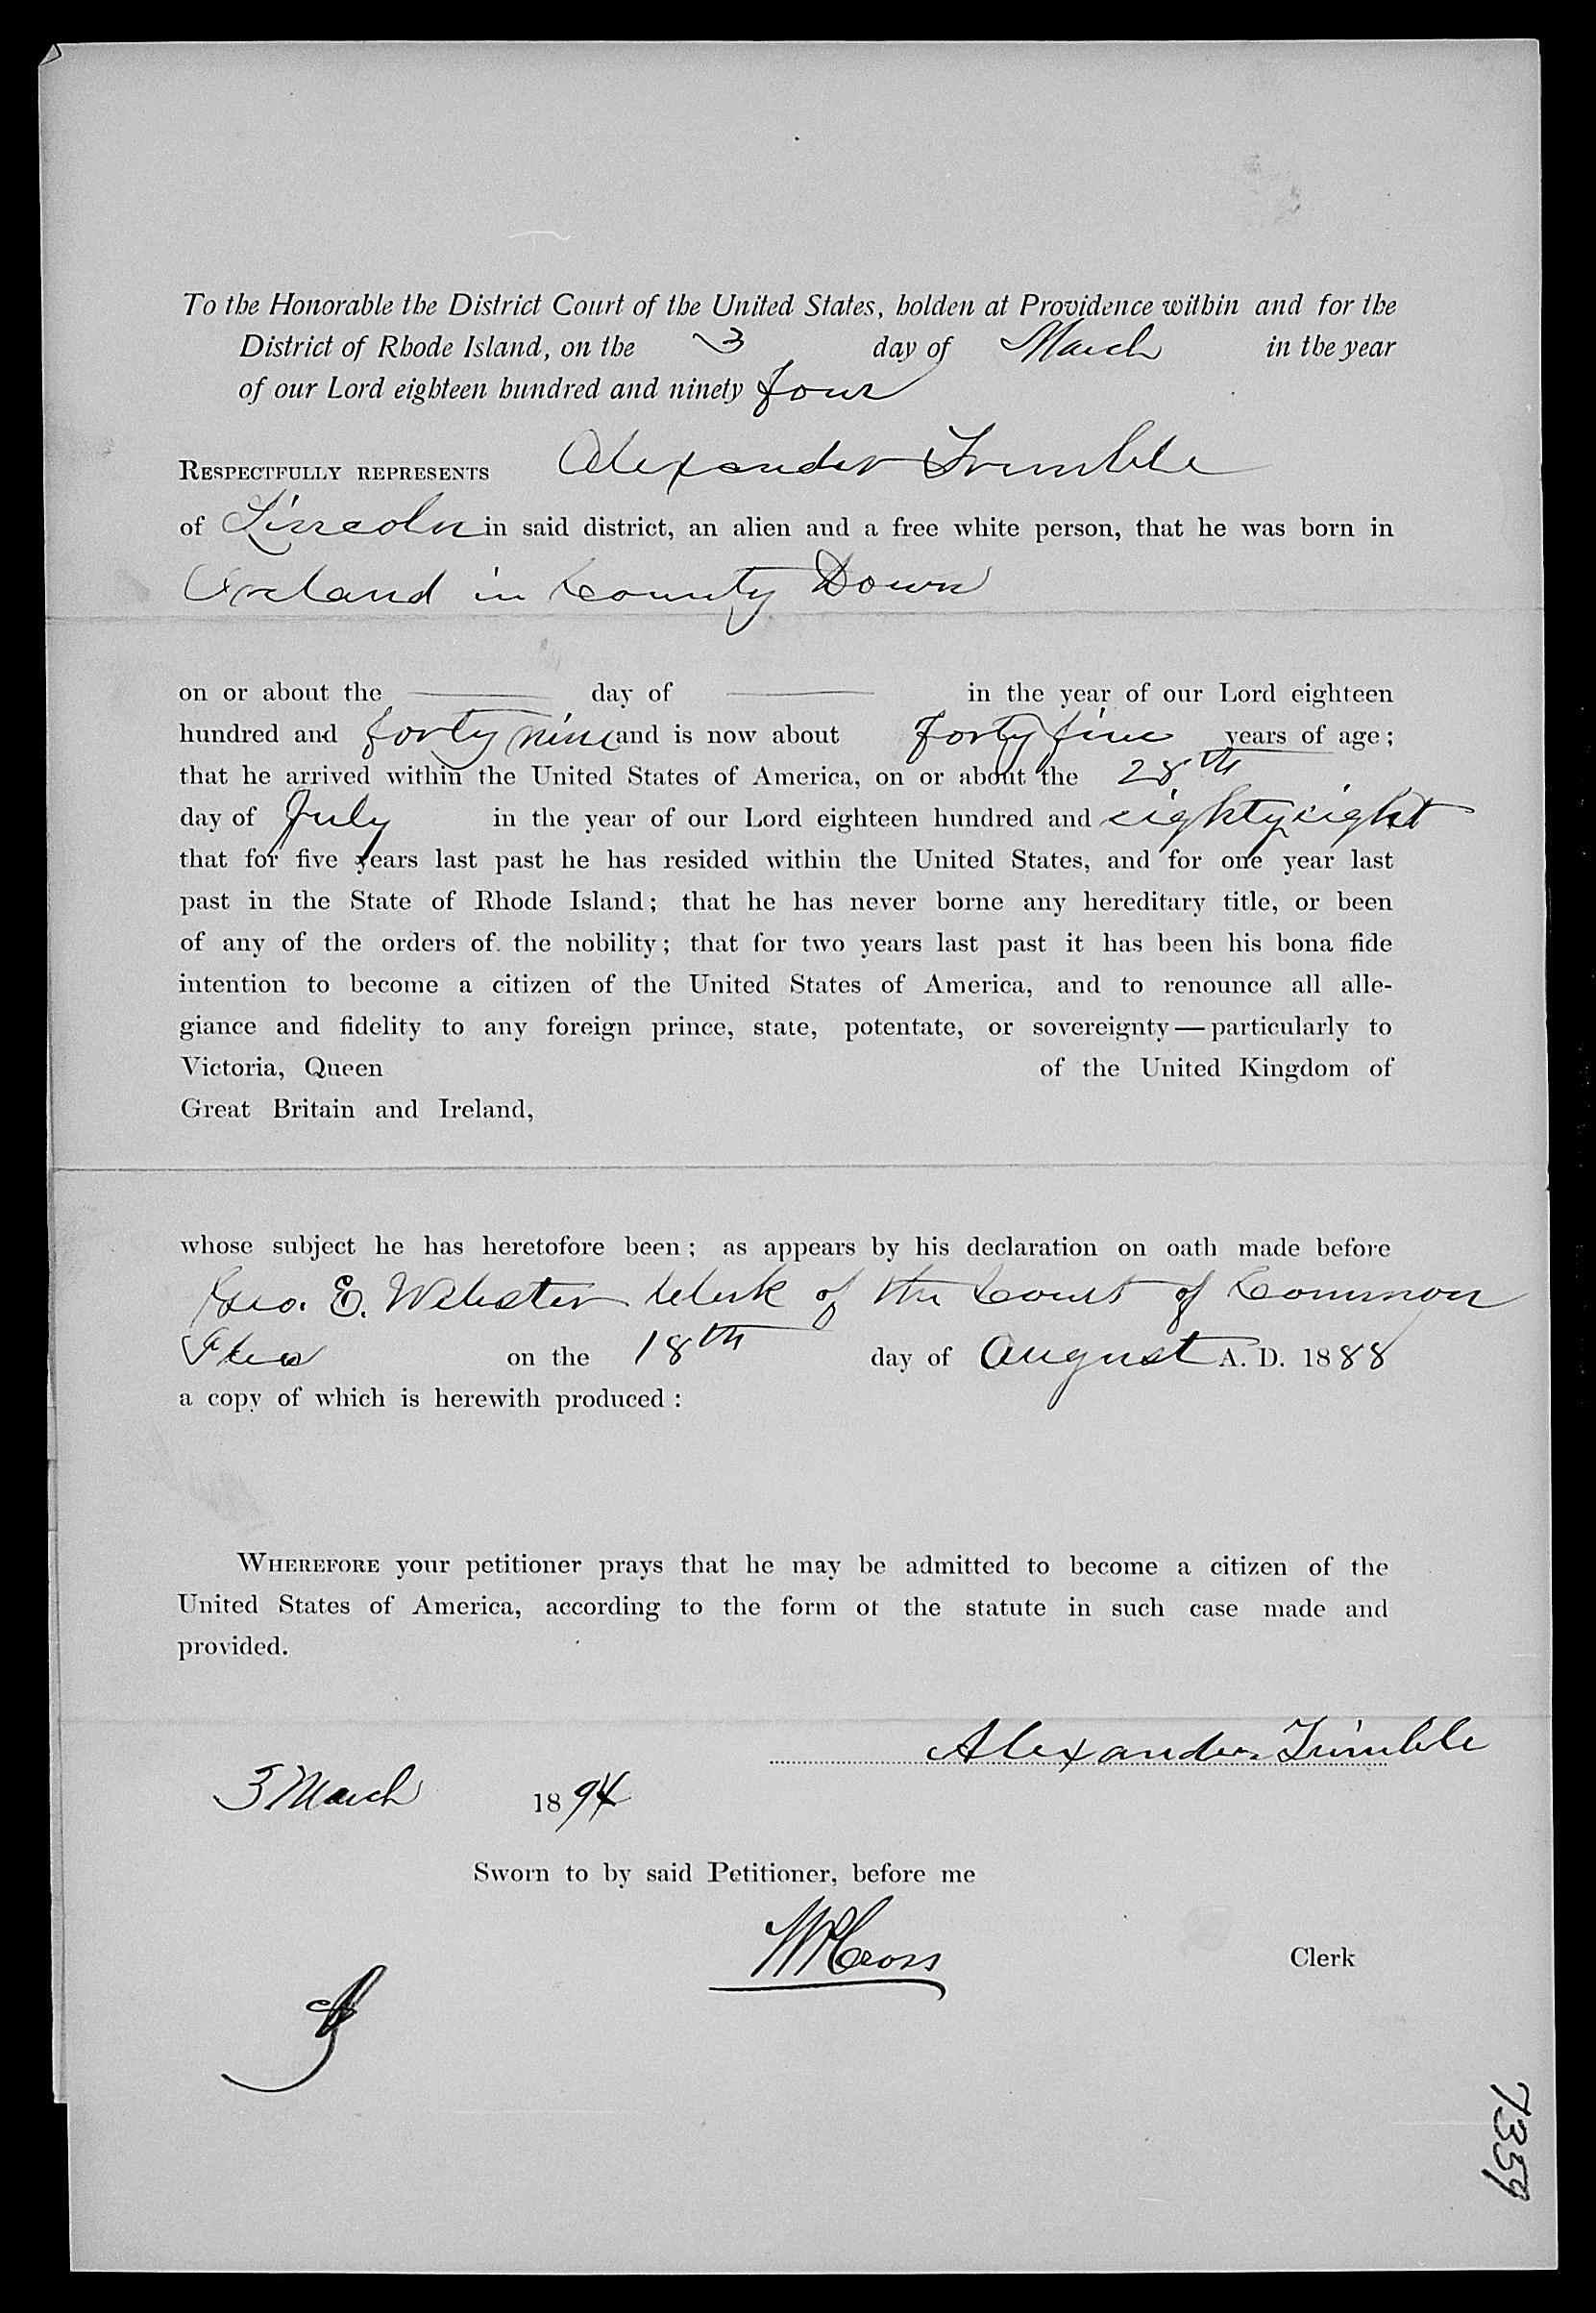 To the Honorable the District Court of the United States, holden at Providence within and for the
District of Rhode Island, on the 3 day of March in the year
of our Lord eighteen hundred and ninety four
RESPECTFULLY REPRESENTS Alexander Trimble
of Lincoln in said district, an alien and a free white person, that he was born in
Ireland in County Down
on or about the —— day of —— in the year of our Lord eighteen
hundred and forty nine and is now about forty five years of age;
that he arrived within the United States of America, on or about the 28th
day of July in the year of our Lord eighteen hundred and eighty eight
that for five years last past he has resided within the United States, and for one year last
past in the State of Rhode Island; that he has never borne any hereditary title, or been
of any of the orders of. the nobility; that for two years last past it has been his bona fide
intention to become a citizen of the United States of America, and to renounce all alle-
giance and fidelity to any foreign prince, state, potentate, or sovereignty — particularly to
Victoria, Queen of the United Kingdom of
Great Britain and Ireland,
whose subject he has heretofore been; as appears by his declaration on oath made before
Geo. E. Webster Clerk of the Court of Common
Pleas on the 18th day of August A. D. 1888
a copy of which is herewith produced:
WHEREFORE your petitioner prays that he may be admitted to become a citizen of the
United States of America, according to the form of the statute in such case made and
provided.
Alexander Trimble
3 March 1894
Sworn to by said Petitioner, before me
WP Cross Clerk
7359